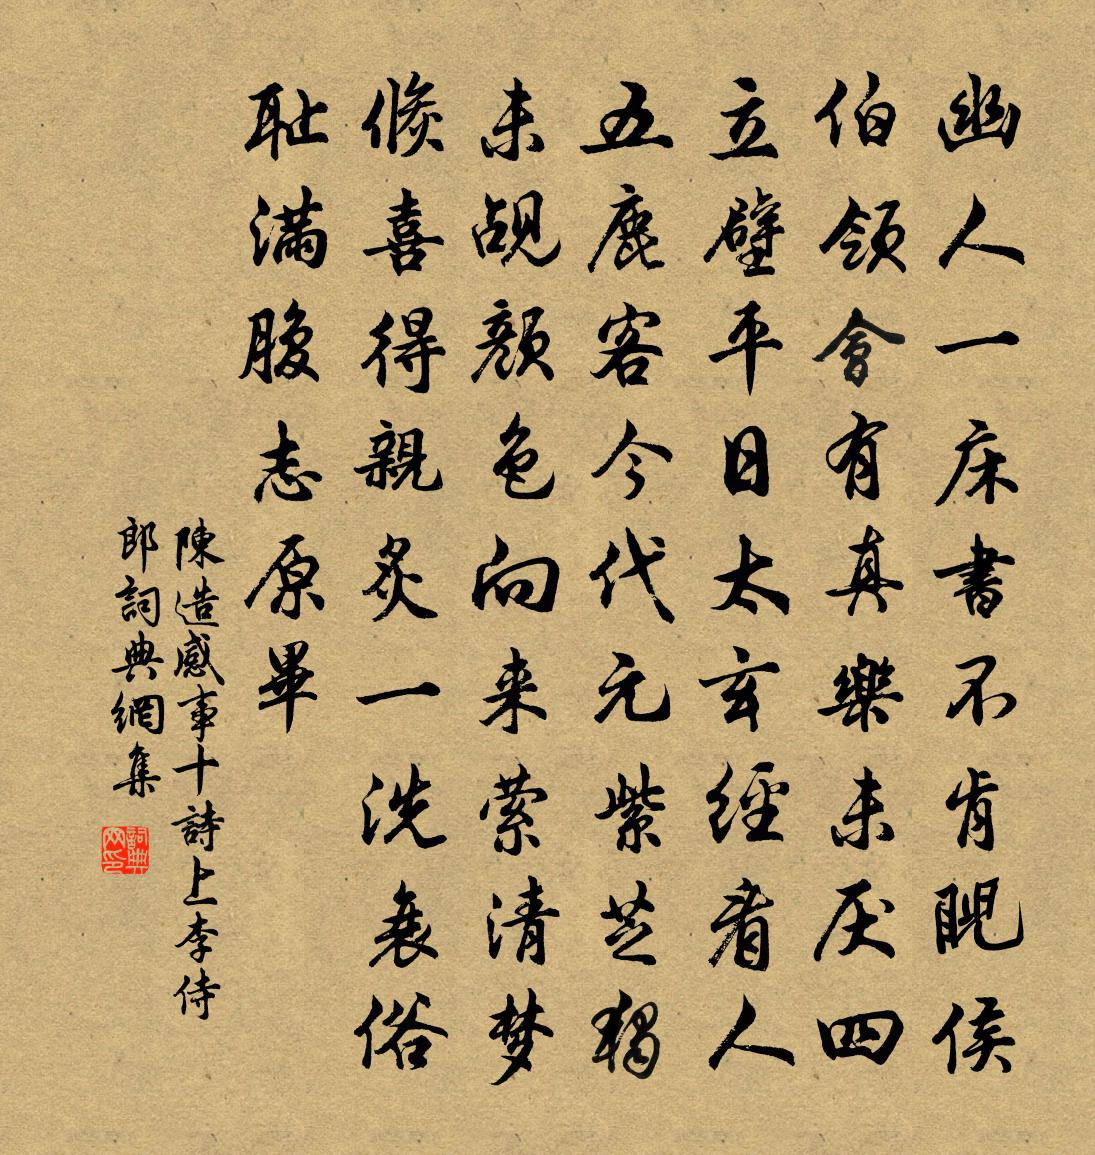 幽人一床書不肯睨侯
伯領會有真樂未厌四
立壁平日太玄經看人
五鹿客今代元紫芝獨
未覘顏色向来萦清梦
倐喜得親炙一洗衰俗
耻滿腹志原畢
陳造感事十詩上李侍
郎詞典網集
詞典网印